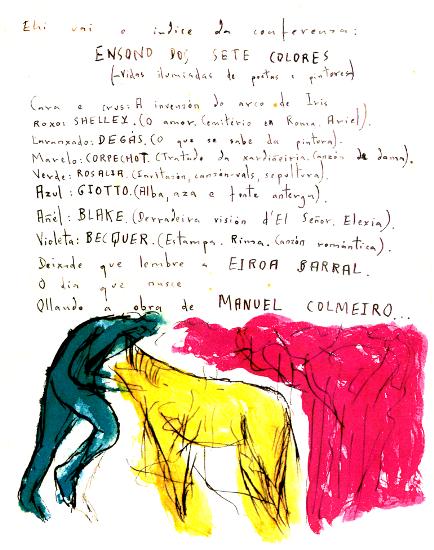 Ehi vai o indice da conferenza:
ENSOÑO DOS SETE COLORES
(Vidas ilumiadas de poetas e pintores)
Cara e crus: A invensón do arco de Iris
Roxo: SHELLEY. (O amor. Cemiterio en Roma. Ariel).
Laranxado: DEGÁS. (O que se sabe da pintora).
Marelo: CORPECHOT. (Tratado da xardiñeiria. Canzón de dama).
Verde: ROSALIA. (Invitazón, canzón-vals, sepultura).
Azul: GIOTTO. (Alba, aza e fonte anterga).
Añil: BLAKE. (Derradeira visión d'El Señor. Elexia).
Violeta: BECQUER. (Estampa. Rima. Canzón romántica).
Deixade que lembre a EIROA BARRAL.
O dia que nasce
Ollando a obra de MANUEL COLMEIRO...